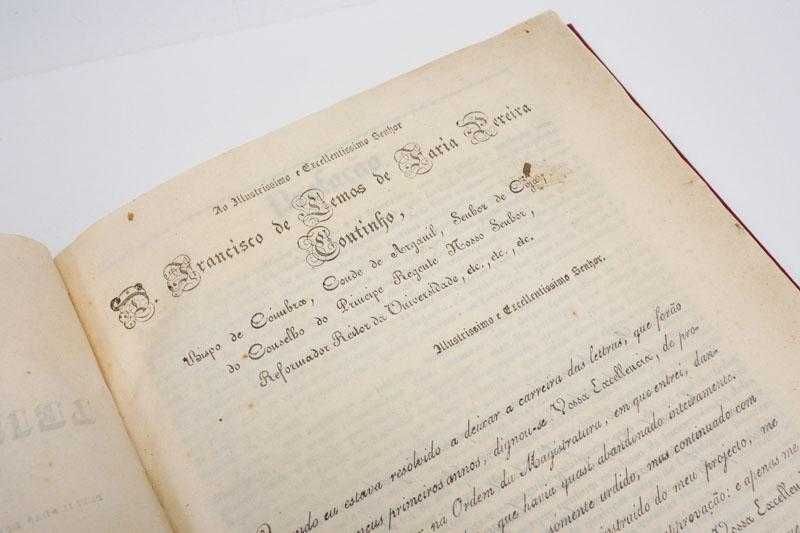 Ao Illustrissimo e Excellentissimo Senhor
D. Francisco de Lemos de Faria Pereira
Coutinho,
Bispo de Coimbra, Conde de Arganil, Senhor de Coja,
do Conselho do Principe Regente Nosso Senhor,
Reformador Reitor da Universidade, etc., etc., etc.
Illustrissimo e Excellentissimo Senhor.
Quando eu estava resolvido a deixar a carreira das letras, que forão
meus primeiros annos, dignou-se Vossa Excellencia, de pro-
na Ordem da Magistratura, em que entrei, dan-
que havia quasi abandonado inteiramente.
sómente urdido, mas continuado com
instruido do meu projecto, me
approvação: e apenas me
Vossa Excellen